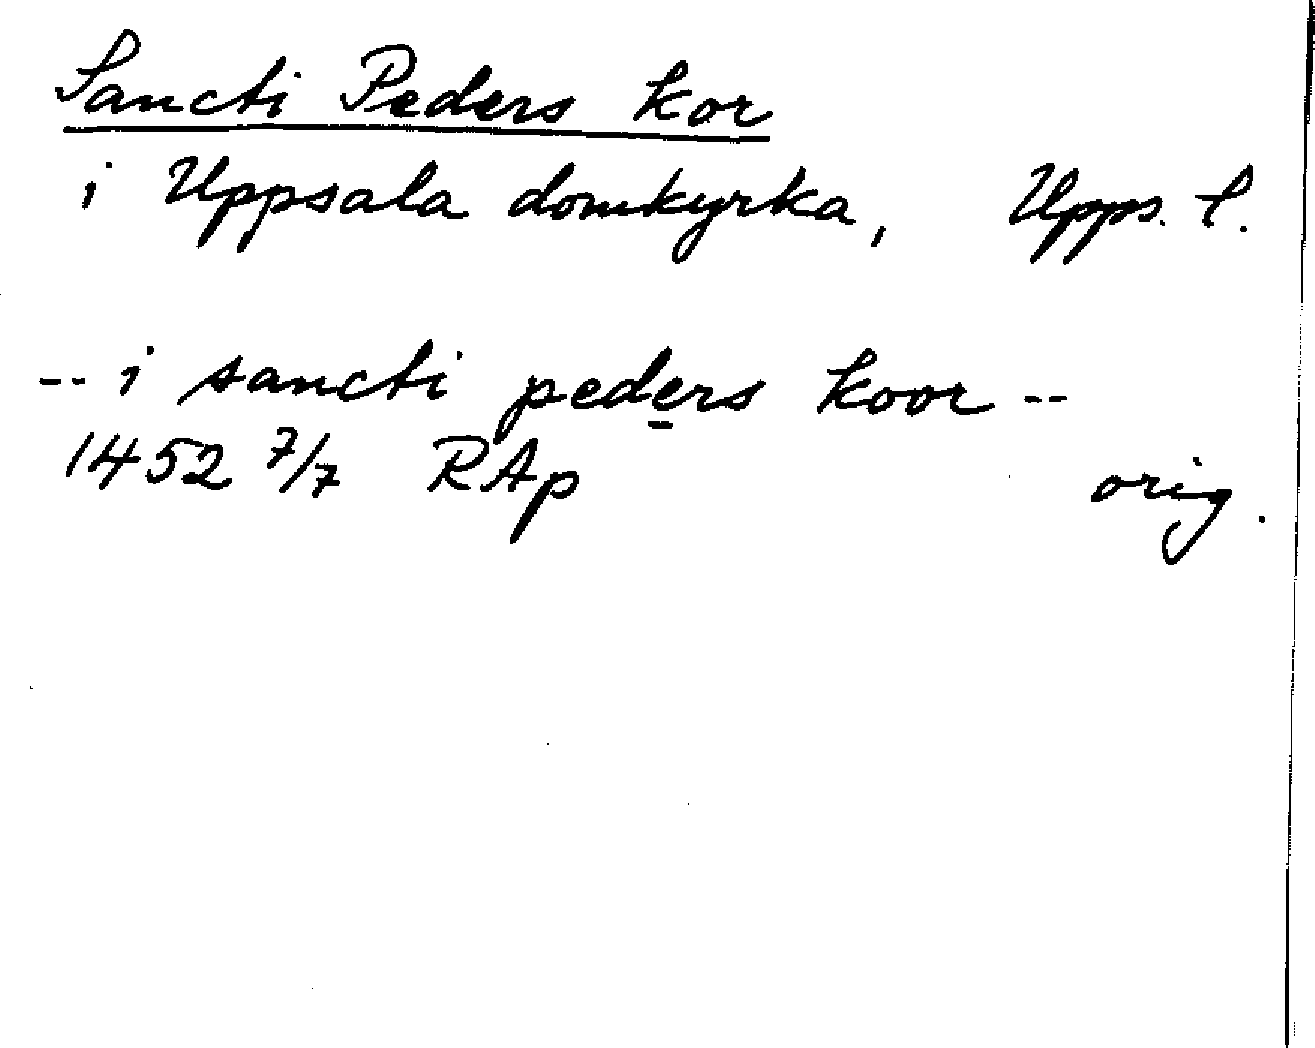 Sancti Peders kor
i Uppsala domkyrka, Upps. l.
-- i sancti peders koor --
1452 7/7 RAp orig.